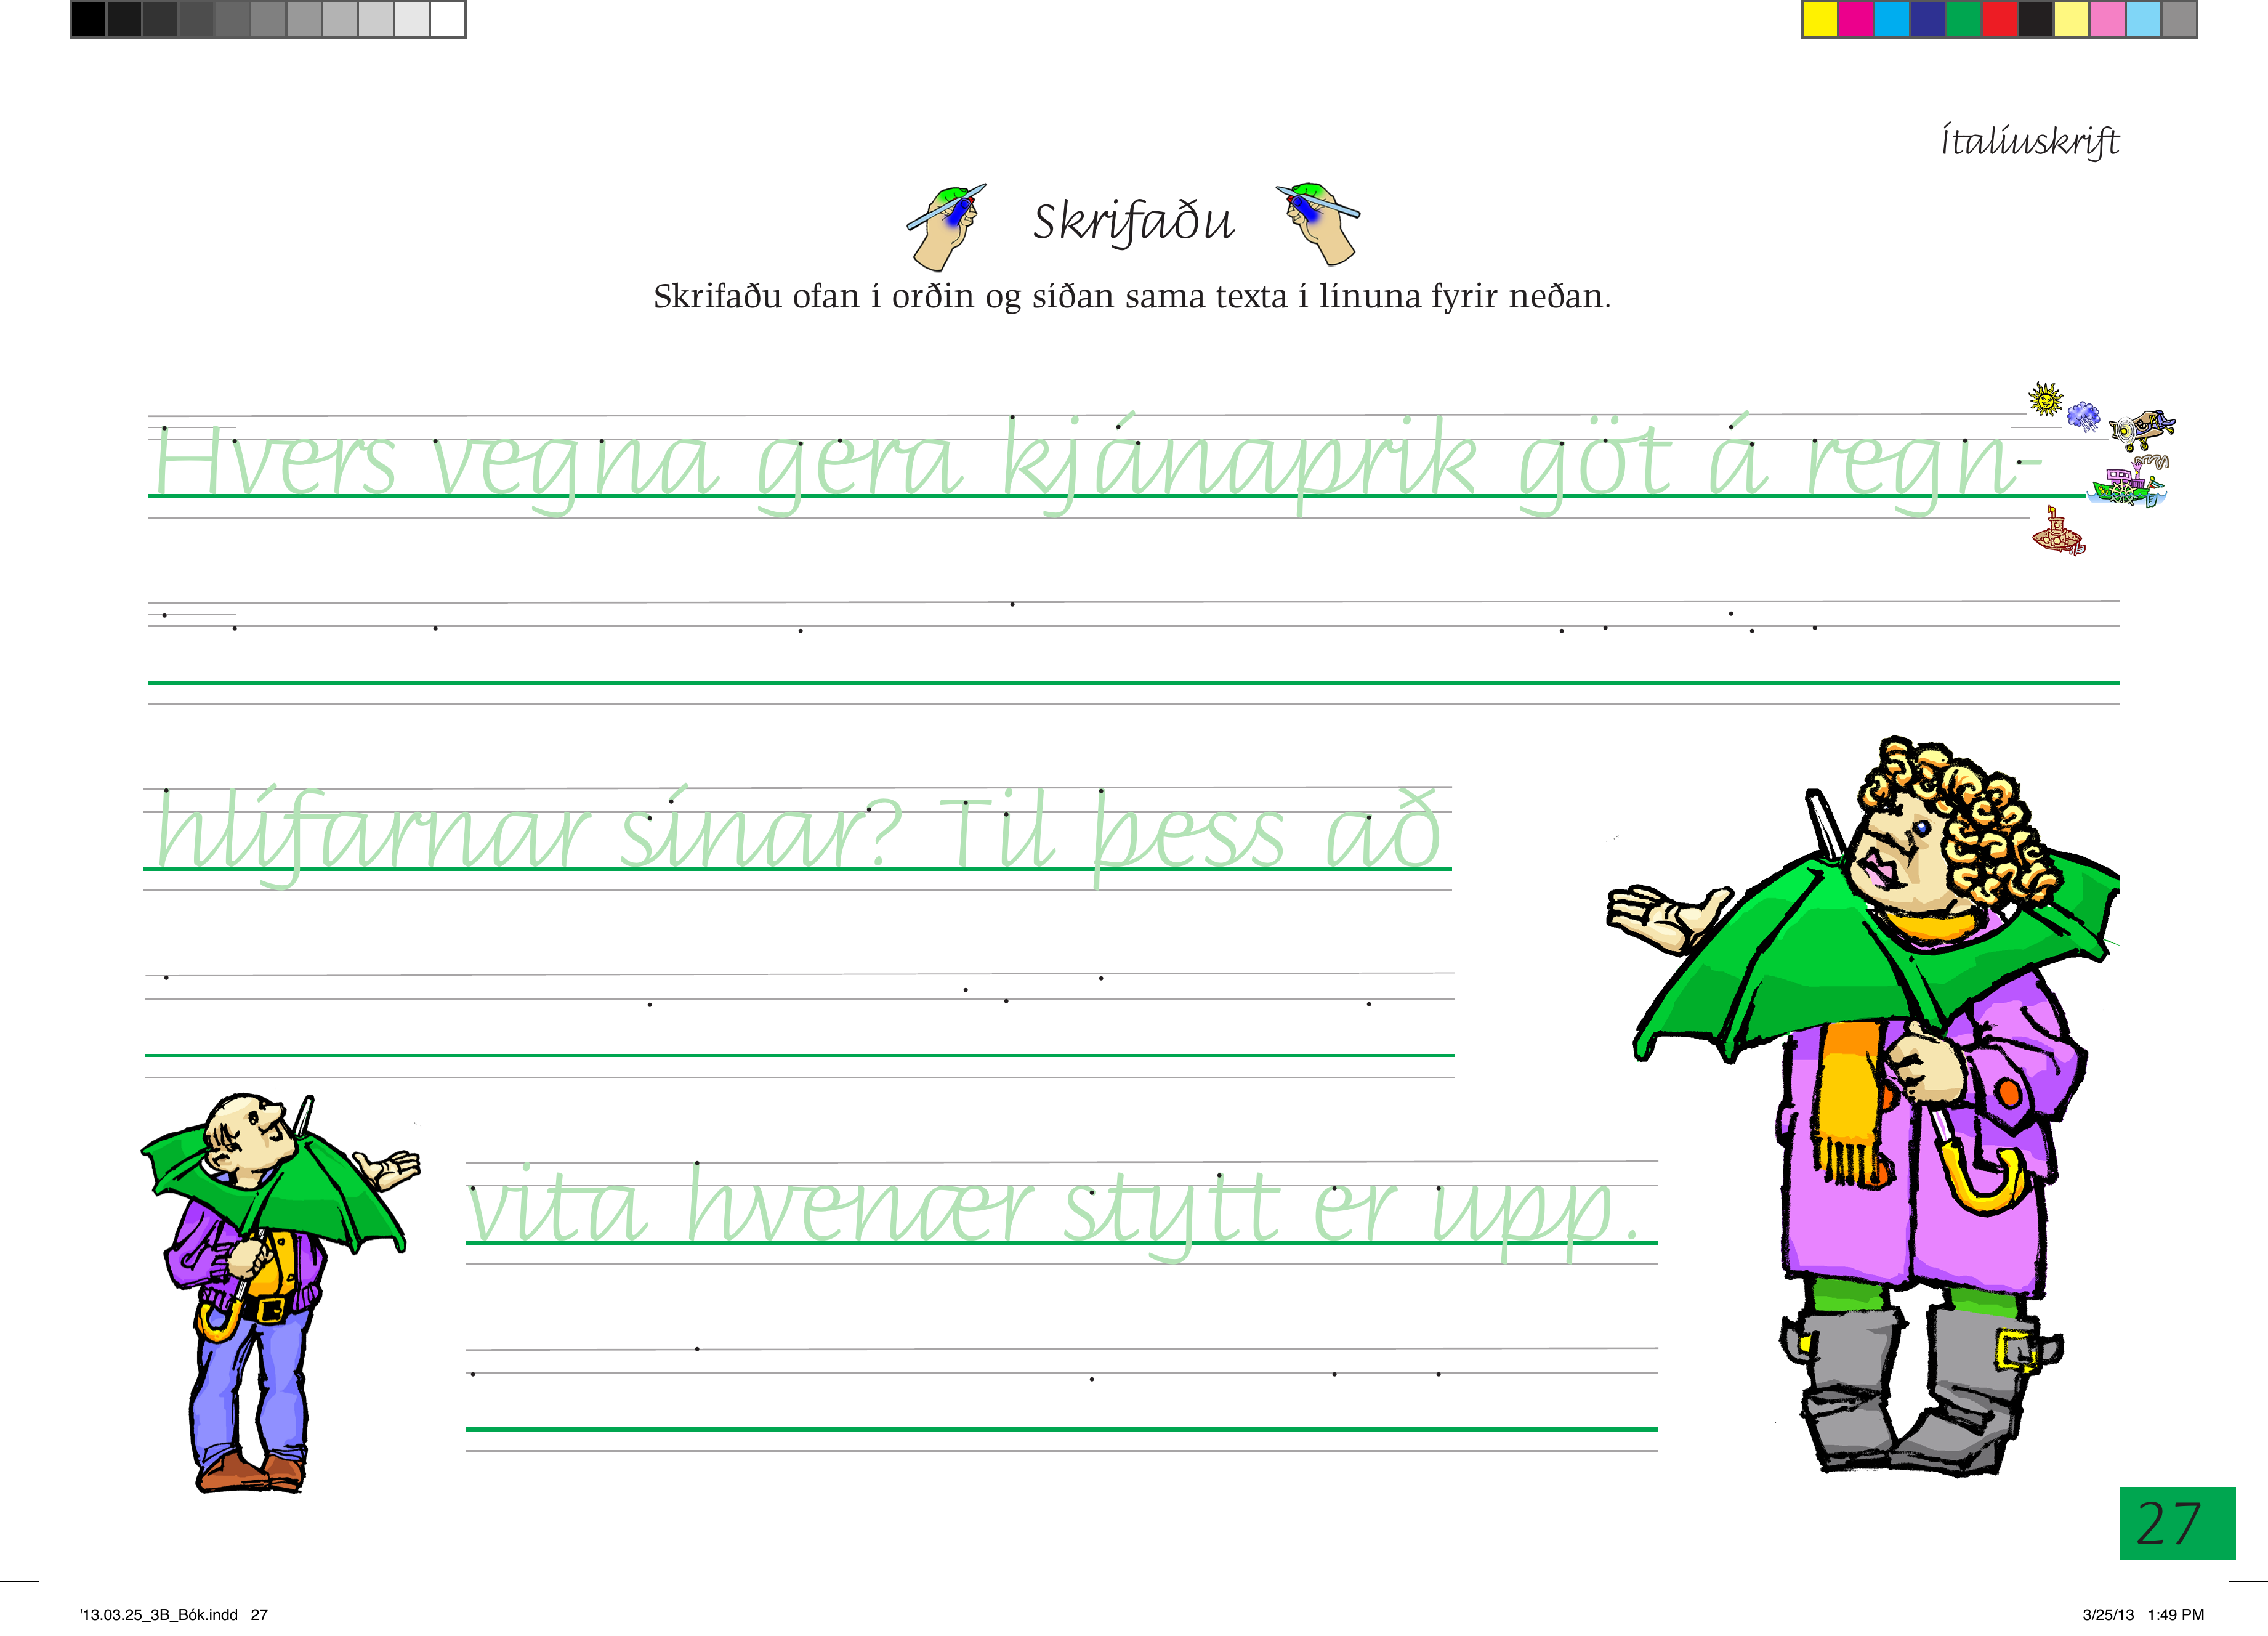 Ítalíuskrift
Skrifaðu
Skrifaðu ofan í orðin og síðan sama texta í línuna fyrir neðan.
Hvers vegna gera kjánaprik göt á regn-
hlífarnar sínar? Til þess að
vita hvenær stytt er upp.
27
'13.03.25_3B_Bók.indd 27
3/25/13 1:49 PM